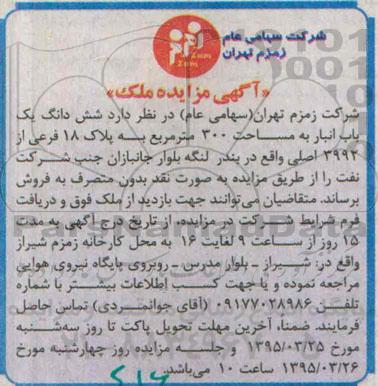 شرکت سهامی عام
زمزم تهران
Zam
Zam
«آگهی مزایده ملک»
شرکت زمزم تهران(سهامی عام) در نظر دارد شش دانگ یک
باب انبار به مساحت ۳۰۰ مترمربع به پلاک ۱۸ فرعی از
۳۹۹۲ اصلی واقع در بندر لنگه بلوار جانبازان جنب شرکت
نفت را از طریق مزایده به صورت نقد بدون متصرف به فروش
برساند. متقاضیان می‌توانند جهت بازدید از ملک فوق و دریافت
فرم شرایط شرکت در مزایده، از تاریخ درج آگهی به مدت
۱۵ روز از ساعت ۹ لغایت ۱۶ به محل کارخانه زمزم شیراز
واقع در: شیراز ـ بلوار مدرس ـ روبروی پایگاه نیروی هوایی
مراجعه نموده و یا جهت کسب اطلاعات بیشتر با شماره
تلفن ۰۹۱۷۷۰۲۸۹۸۶ (آقای جوانمردی) تماس حاصل
فرمایند. ضمنا، آخرین مهلت تحویل پاکت تا روز سه‌شنبه
مورخ ۱۳۹۵/۰۳/۲۵ و جلسه مزایده روز چهارشنبه مورخ
۱۳۹۵/۰۳/۲۶ ساعت ۱۰ می‌باشد.